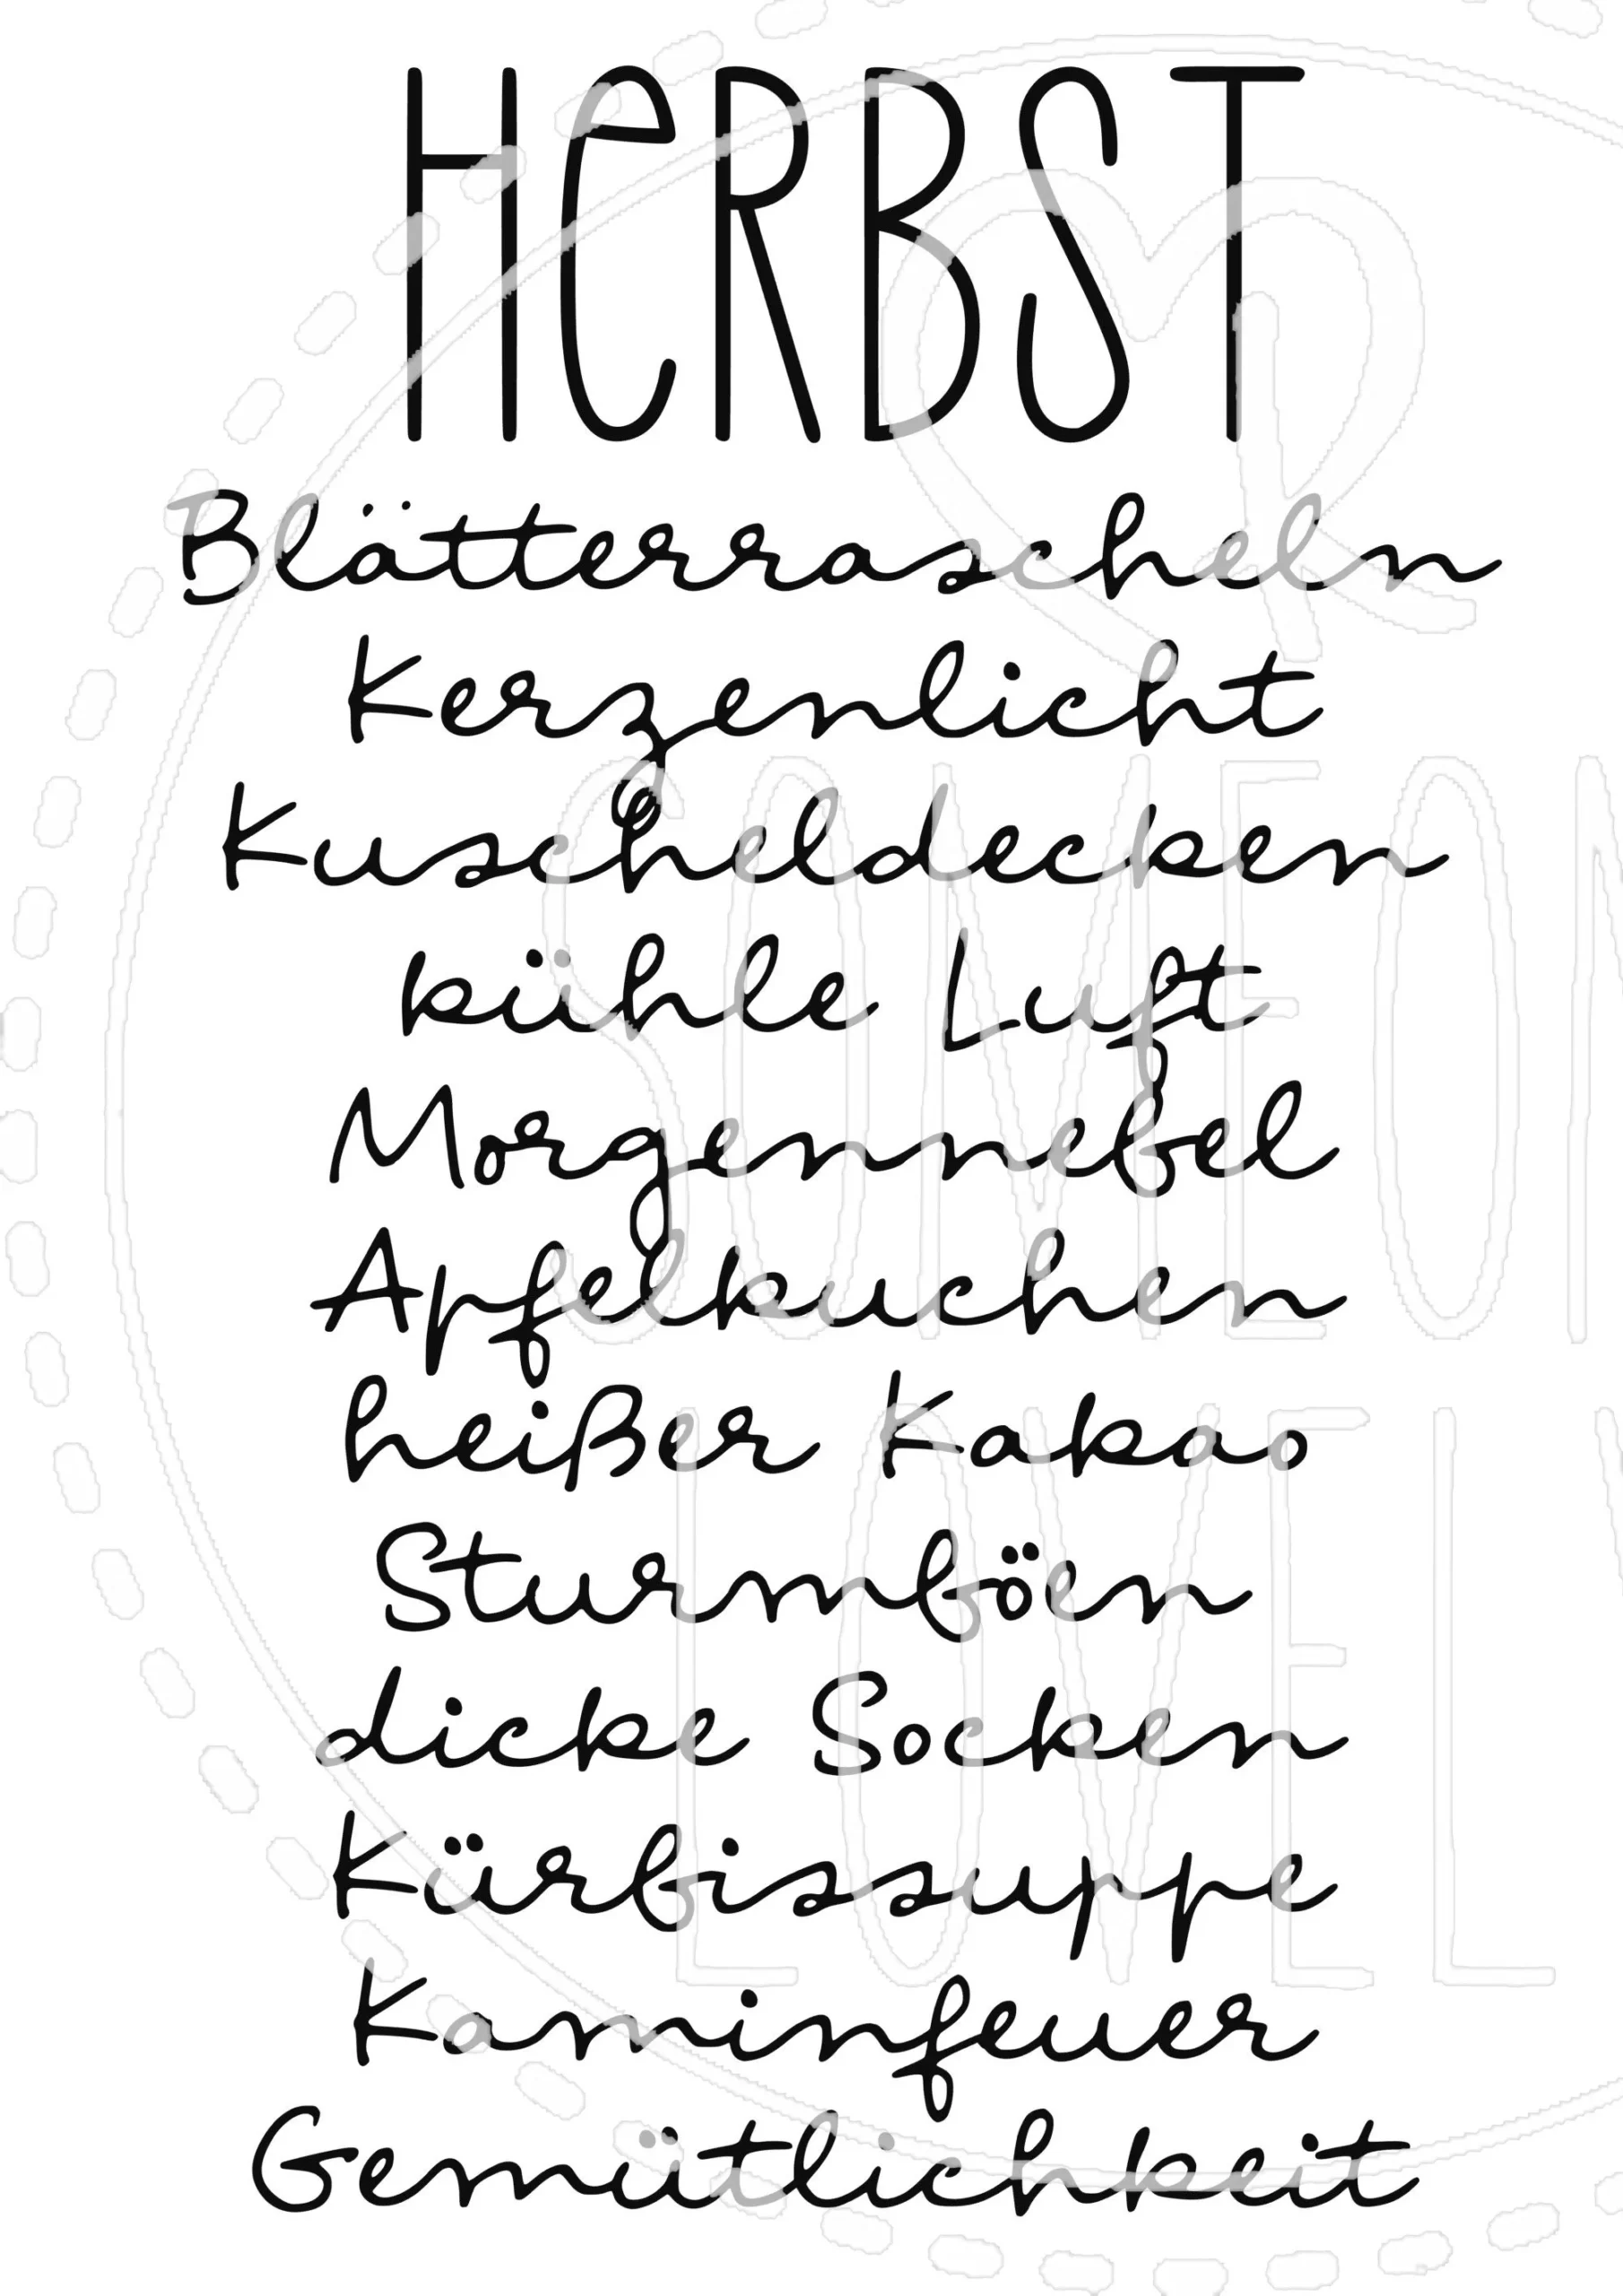 HERBST
Blätterrascheln
Kerzenlicht
Kuscheldecken
kühle Luft
Morgennebel
Apfelkuchen
heißer Kakao
Sturmböen
dicke Socken
Kürbissuppe
Kaminfeuer
Gemütlichkeit